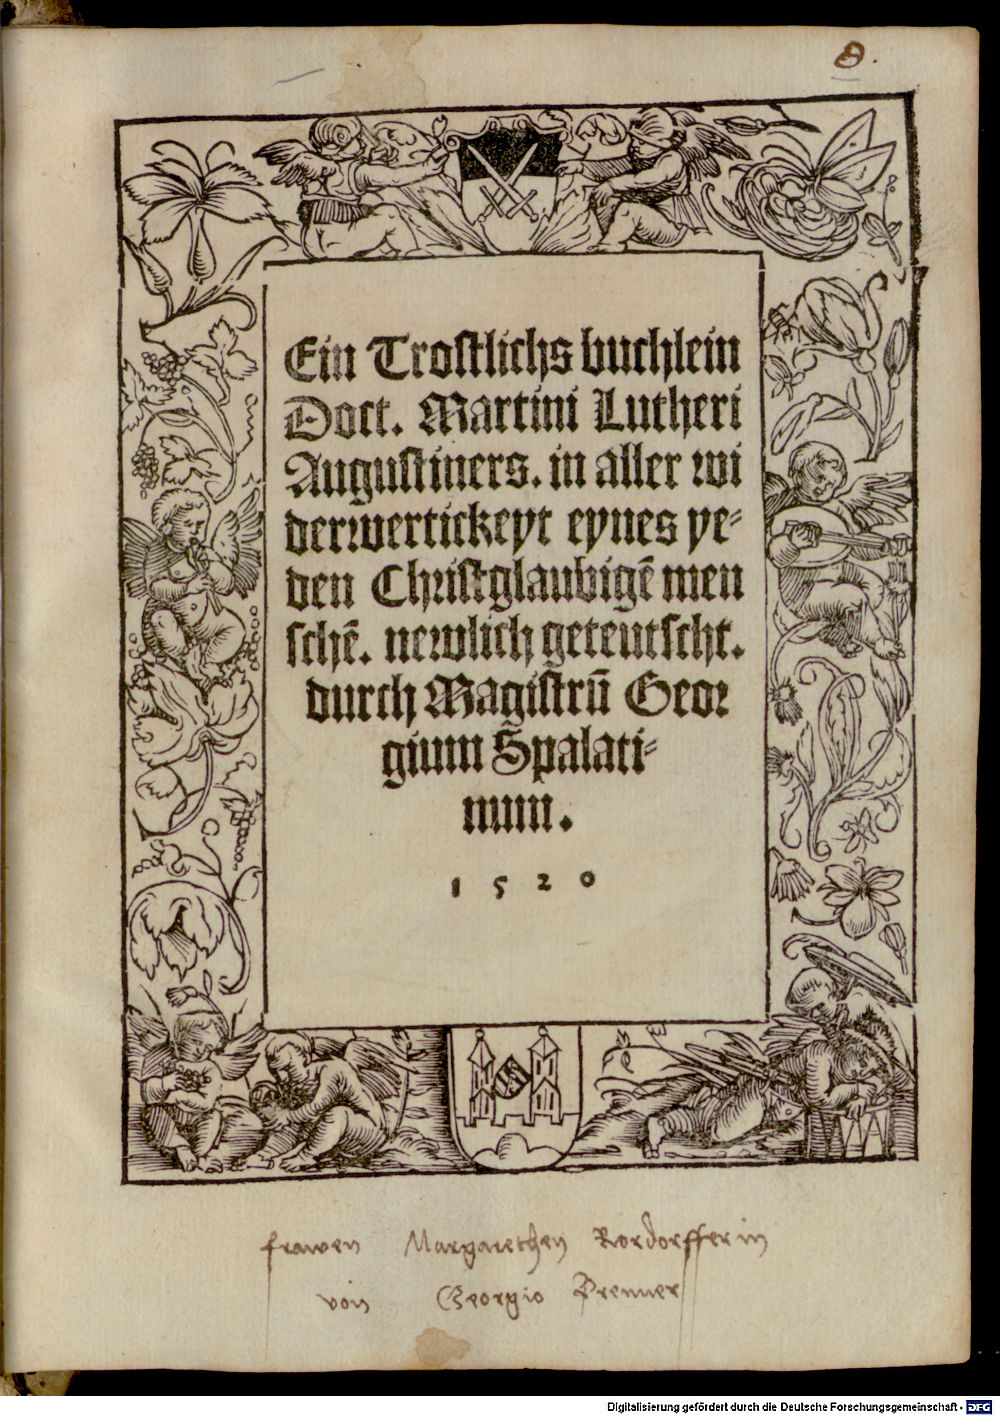 8.
Ein Trostlichs buchlein
Doct. Martini Lutheri
Augustiners. in aller wi
derwertickeyt eynes ye-
den Christglaubigē men
schē. newlich geteutscht.
durch Magistrū Geor
gium Spalati-
num.
1520
frawen Margarethen Rordorfferin
von Georgio Prenner
Digitalisierung gefördert durch die Deutsche Forschungsgemeinschaft - DFG